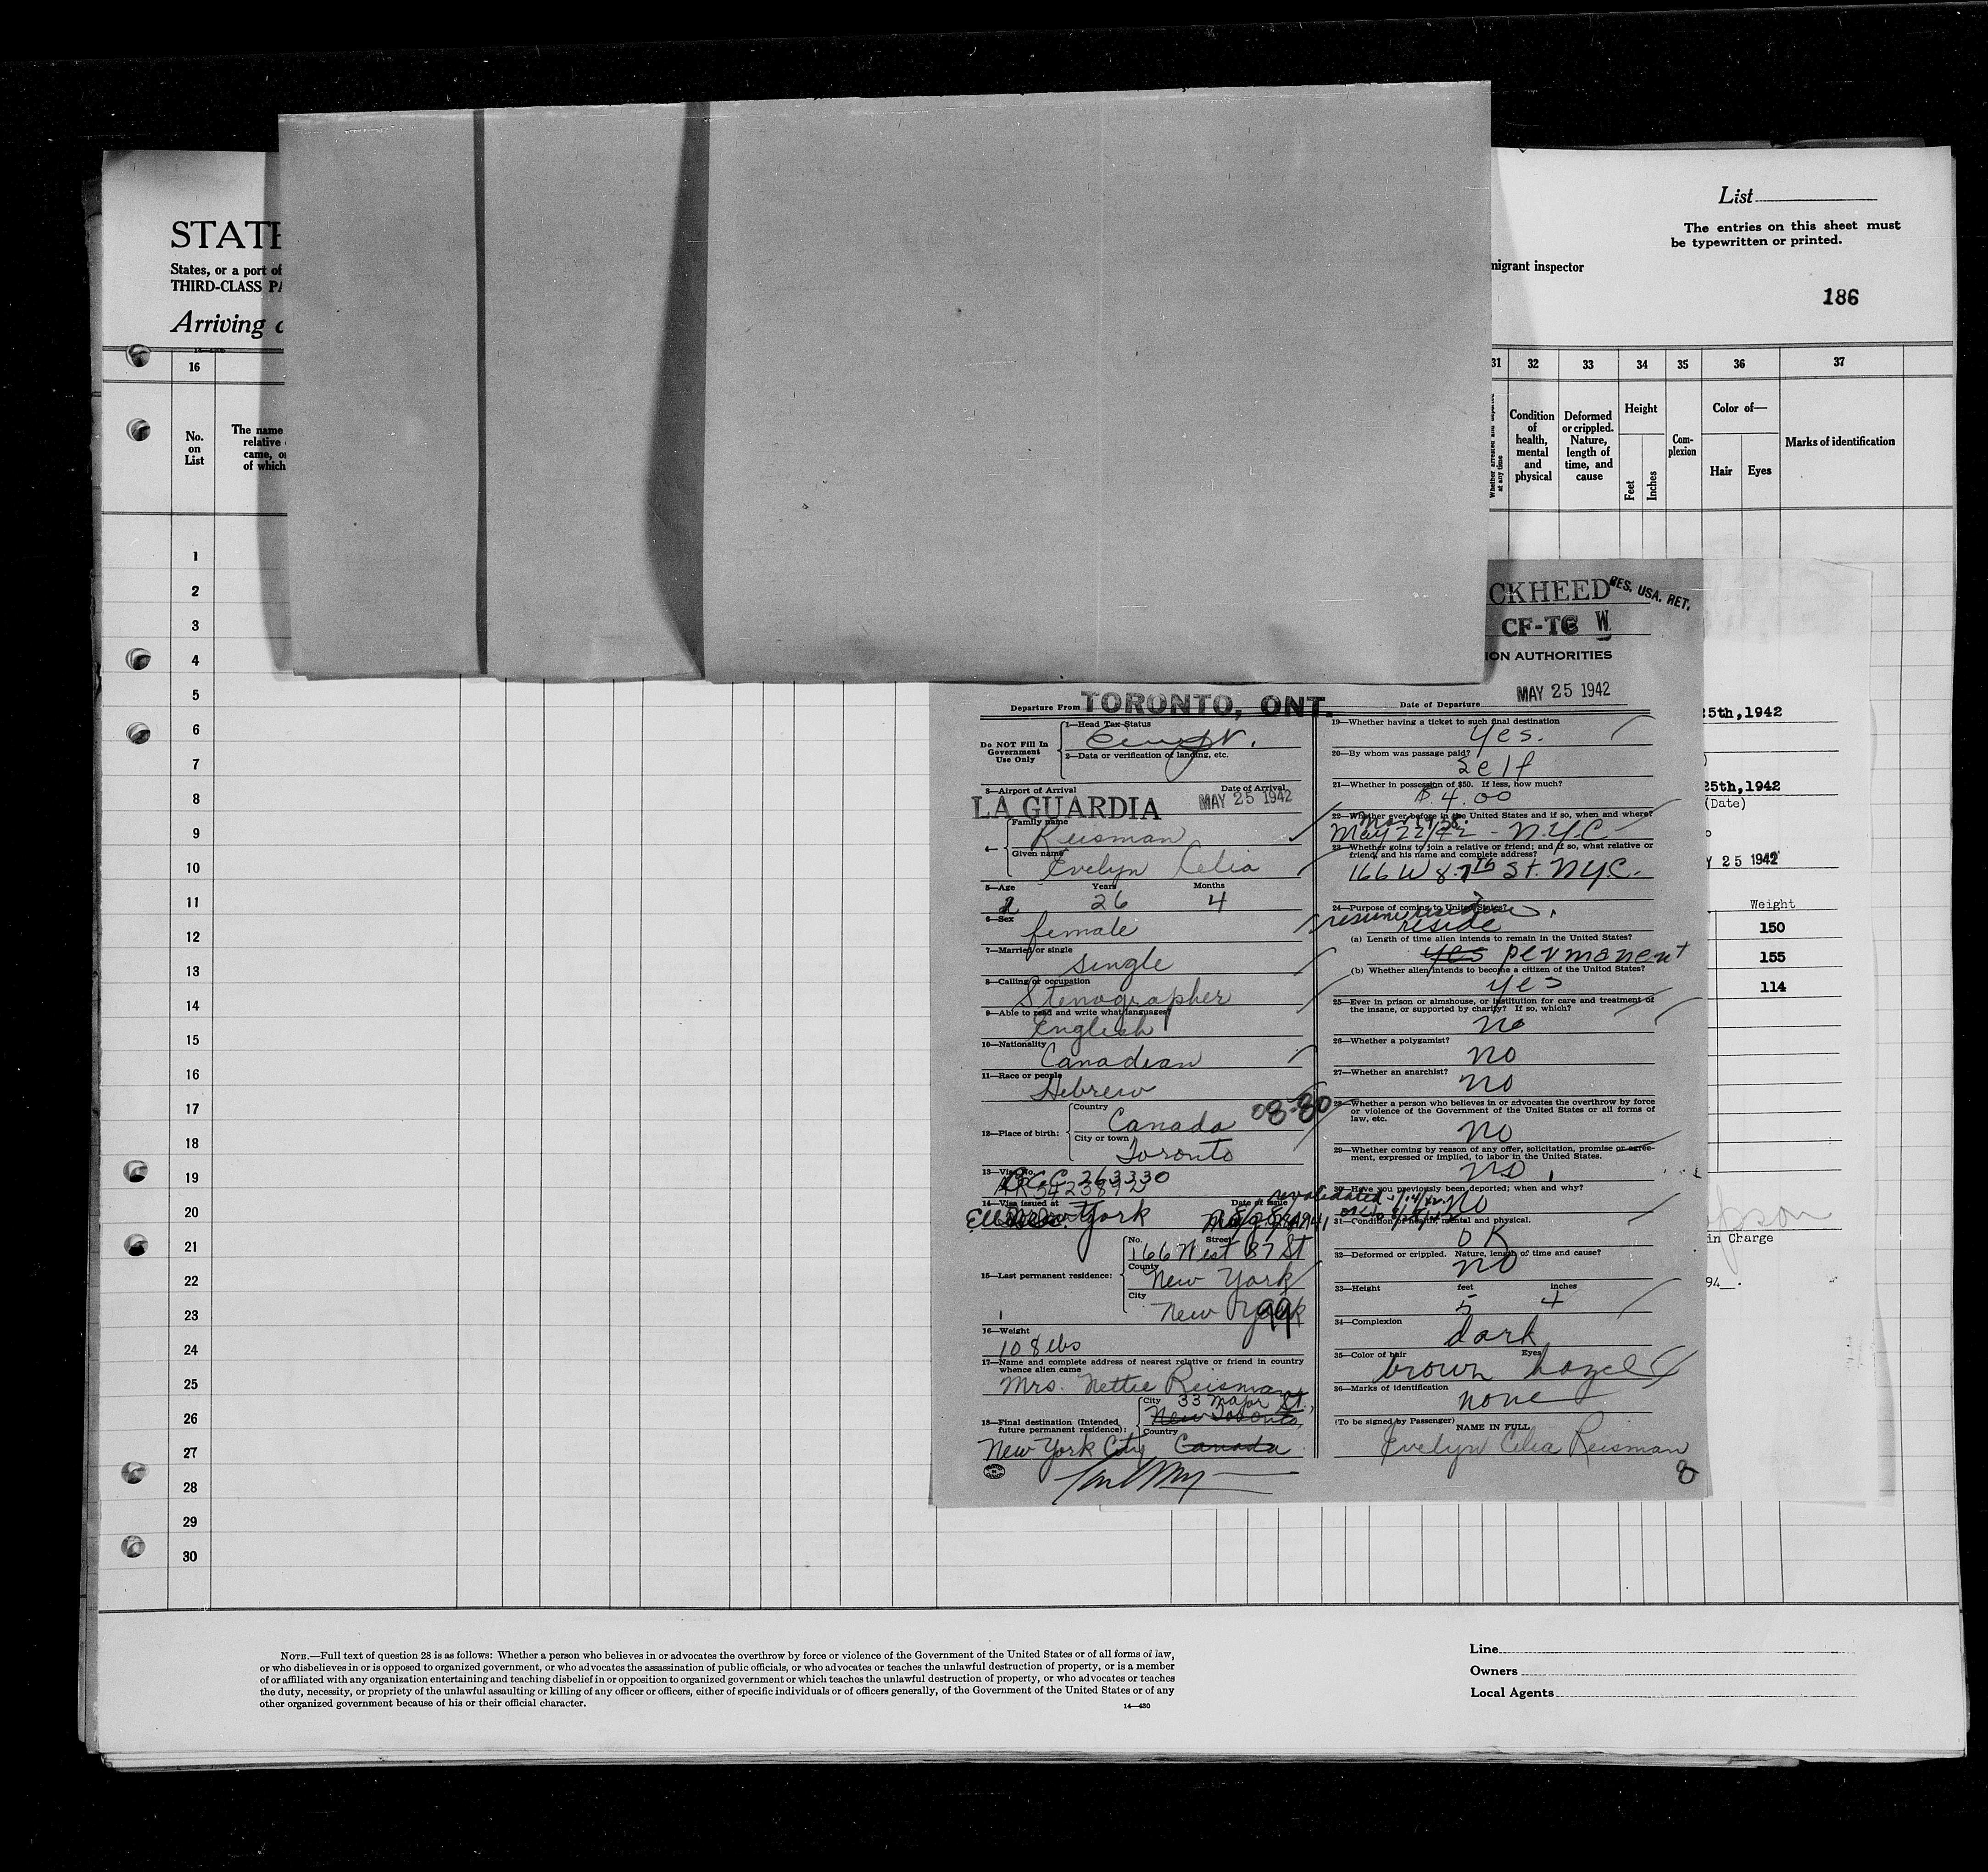 STATE
States, or a port of
THIRD-CLASS PA
Arriving a
List
The entries on this sheet must
be typewritten or printed.
migrant inspector
186
16
31
32
33
34
35
36
37
No.
on
List
The name
relative
came, or
of which
Whether arrested and deported
at any time
Condition
of
health,
mental
and
physical
Deformed
or crippled.
Nature,
length of
time, and
cause
Height
Feet
Inches
Com-
plexion
Color of—
Hair
Eyes
Marks of identification
1
2
3
4
5
6
7
8
9
10
11
12
13
14
15
16
17
18
19
20
21
22
23
24
25
26
27
28
29
30
CKHEED
RES. USA. RET.
CF-TC W
ION AUTHORITIES
Departure From TORONTO, ONT.
Date of Departure MAY 25 1942
Do NOT Fill In
Government
Use Only
1—Head Tax Status
2—Data or verification of landing, etc.
3—Airport of Arrival
Date of Arrival
LA GUARDIA
MAY 25 1942
4—
Family name
Reisman
Given name
Evelyn Celia
5—Age
Years
Months
26
4
6—Sex
female
7—Married or single
single
8—Calling or occupation
Stenographer
9—Able to read and write what languages?
English
10—Nationality
Canadian
11—Race or people
Hebrew
12—Place of birth:
Country
Canada
08-80
City or town
Toronto
13—Visa No.
263330
14—Visa issued at
Date of Issue
revalidated
York
15—Last permanent residence:
No.
Street
166 West 87 St
County
New York
City
New York
99
16—Weight
108 lbs
17—Name and complete address of nearest relative or friend in country
whence alien came
Mrs. Nettie Reisman
33 Major St.,
18—Final destination (Intended
future permanent residence):
City
New Toronto,
Country
New York City Canada
19—Whether having a ticket to such final destination
yes.
20—By whom was passage paid?
Self
21—Whether in possession of $50. If less, how much?
$4.00
22—Whether ever before in the United States and if so, when and where?
May 22/42 - N.Y.C
23—Whether going to join a relative or friend; and if so, what relative or
friend and his name and complete address?
166 W 87th St. N.Y.C.
24—Purpose of coming to United States?
resume residence.
reside
(a) Length of time alien intends to remain in the United States?
yes permanent
(b) Whether alien intends to become a citizen of the United States?
yes
25—Ever in prison or almshouse, or institution for care and treatment of
the insane, or supported by charity? If so, which?
no
26—Whether a polygamist?
no
27—Whether an anarchist?
no
28—Whether a person who believes in or advocates the overthrow by force
or violence of the Government of the United States or all forms of
law, etc.
no
29—Whether coming by reason of any offer, solicitation, promise or agree-
ment, expressed or implied, to labor in the United States.
no
30—Have you previously been deported; when and why?
no
31—Condition of health, mental and physical.
OK
32—Deformed or crippled. Nature, length of time and cause?
no
33—Height
feet
inches
5
4
34—Complexion
dark
35—Color of hair
Eyes
brown hazel
36—Marks of identification
none
(To be signed by Passenger)
NAME IN FULL
Evelyn Celia Reisman
8
25th, 1942
25th, 1942
(Date)
Y 25 1942
Weight
150
155
114
in Charge
94__.
NOTE.—Full text of question 28 is as follows: Whether a person who believes in or advocates the overthrow by force or violence of the Government of the United States or of all forms of law,
or who disbelieves in or is opposed to organized government, or who advocates the assassination of public officials, or who advocates or teaches the unlawful destruction of property, or is a member
of or affiliated with any organization entertaining and teaching disbelief in or opposition to organized government or which teaches the unlawful destruction of property, or who advocates or teaches
the duty, necessity, or propriety of the unlawful assaulting or killing of any officer or officers, either of specific individuals or of officers generally, of the Government of the United States or of any
other organized government because of his or their official character.
14—430
Line
Owners
Local Agents